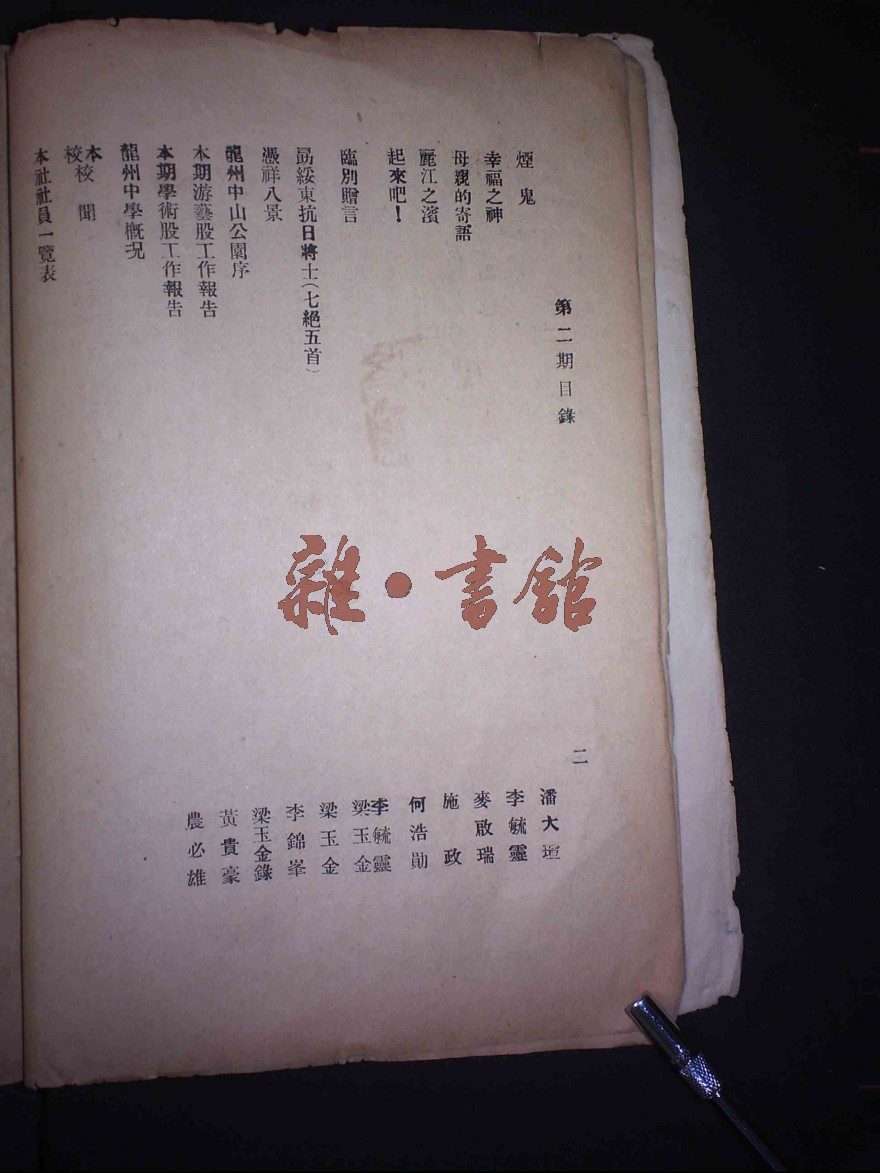 第二期目錄
二
煙鬼 潘大
幸福之神 李毓靈
母親的寄語 麥啟瑞
麗江之濱 施政
起來吧！ 何浩勛
臨別贈言 李毓靈 梁玉金
勗綏東抗日將士（七絕五首） 梁玉金
憑祥八景 李錦峯
龍州中山公園序 梁玉金錄
本期游藝股工作報告 黃貴豪
本期學術股工作報告 農必雄
龍州中學概況
本校校聞
本社社員一覽表
雜·書館